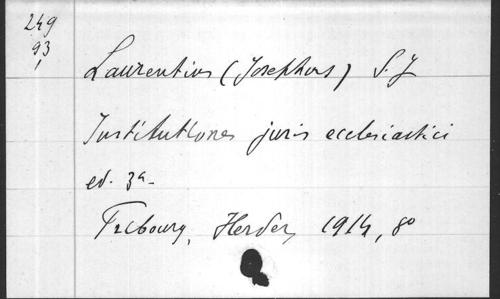 249
93
Laurentius (Josephus) S. J
Institutiones juris ecclesiastici
ed. 3a
Fribourg, Herder, 1914, 8o